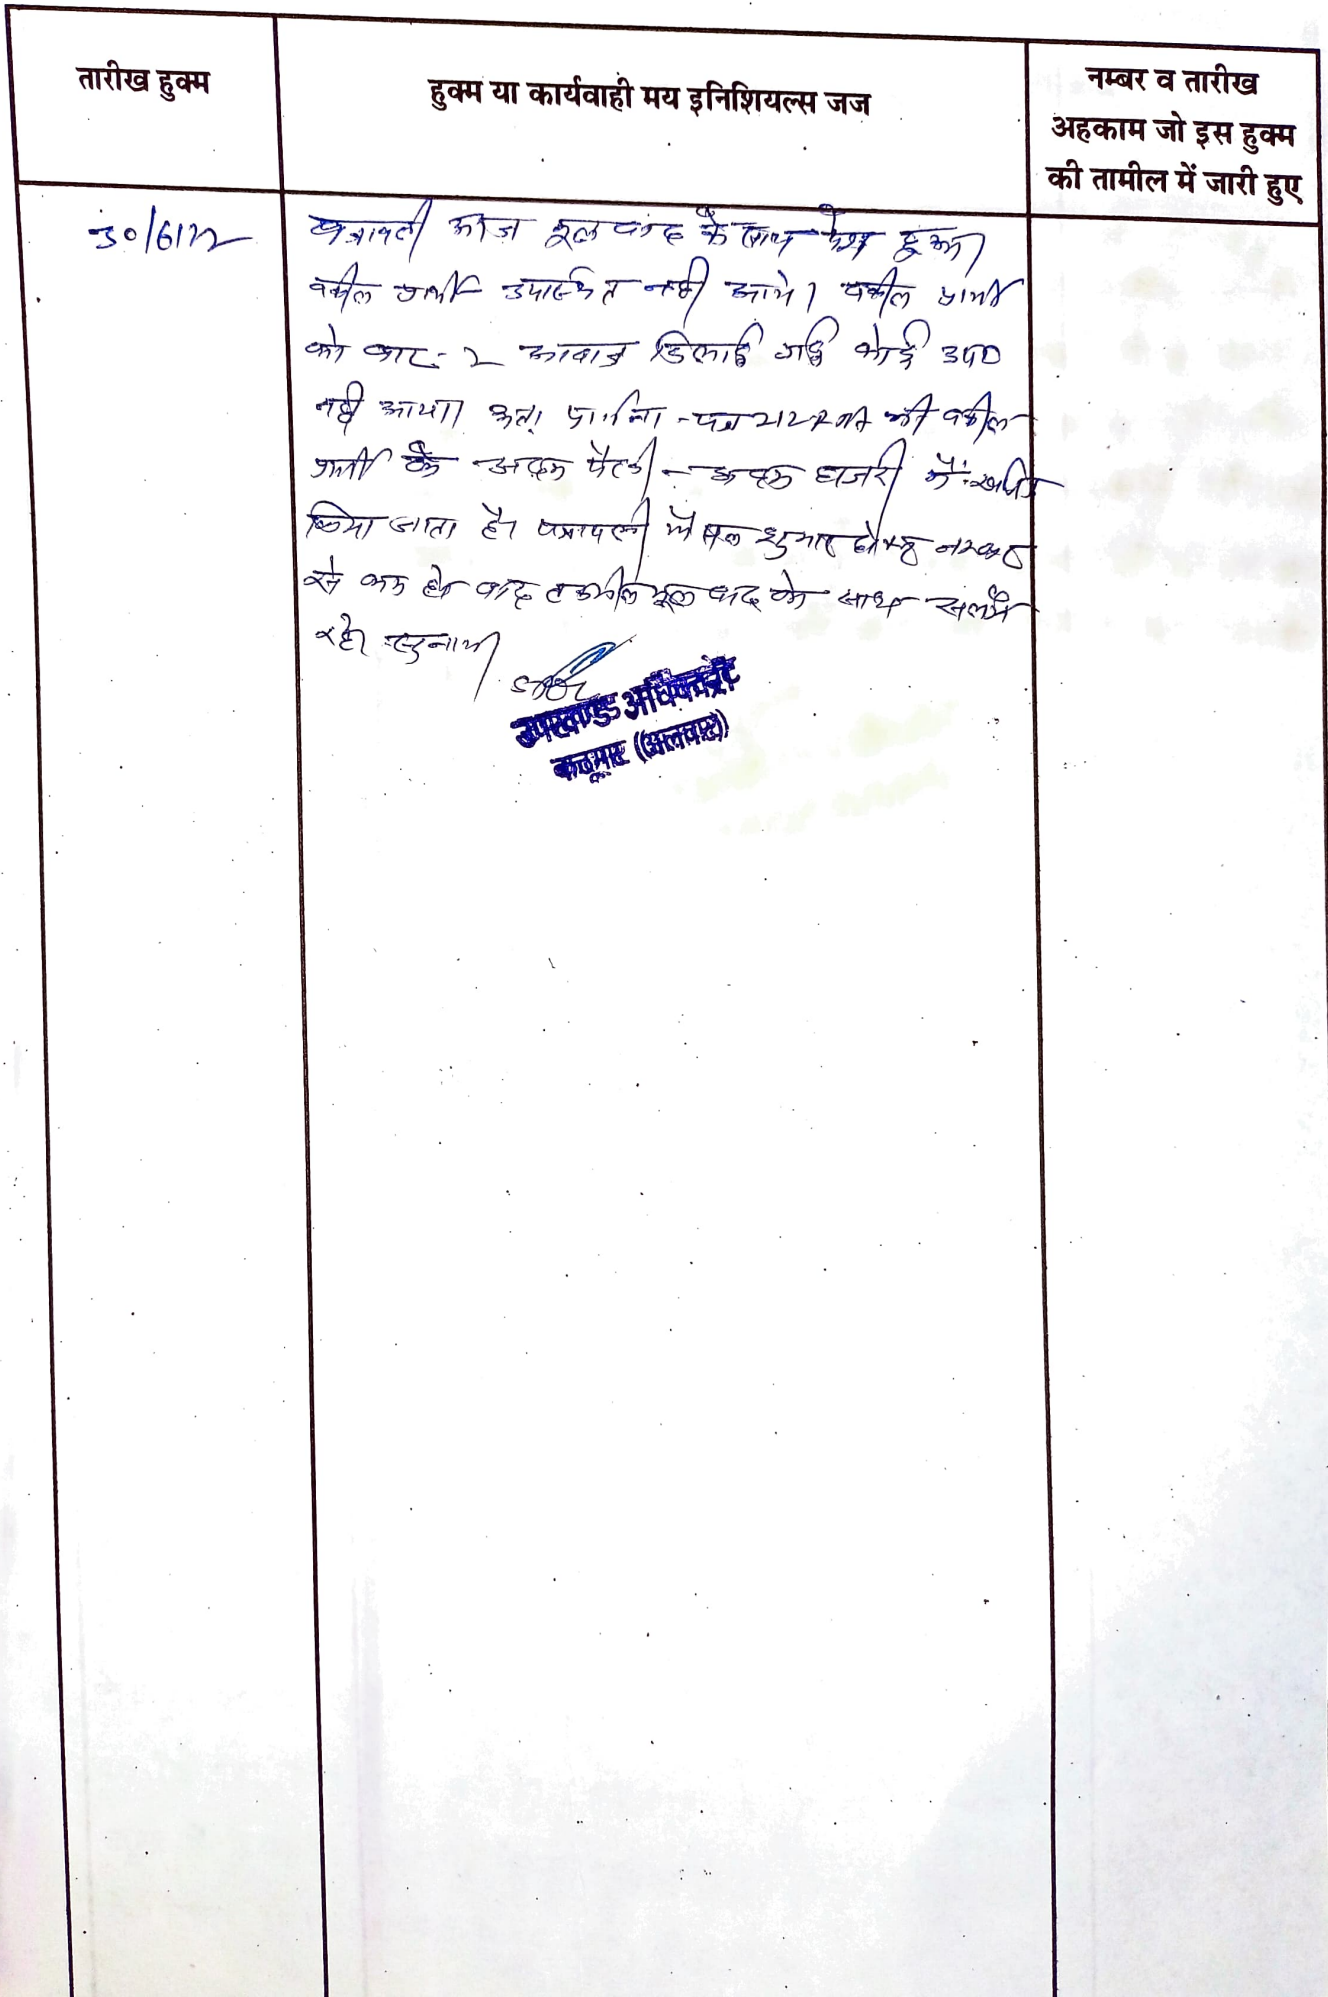 तारीख हुक्म
हुक्म या कार्यवाही मय इनिशियल्स जज
नम्बर व तारीख
अहकाम जो इस हुक्म
की तामील में जारी हुए
30/6/22
पत्रावली आज मूल वाद के साथ पेश हुआ।
वकील प्रार्थी उपस्थित नही आये। वकील प्रार्थी
को बार-2 आवाज दिलाई गई कोई उप०
नही आया। अतः प्रार्थना-पत्र की वकील
प्रार्थी के अदम पैरवी - अदम हाजरी में खारिज
किया जाता है। पत्रावली फैसल शुमार होकर नम्बर
से कम हो बाद तकमील मूल वाद के साथ संलग्न
रहे। सुनाया।
उपखण्ड अधिकारी
कठूमर (अलवर)